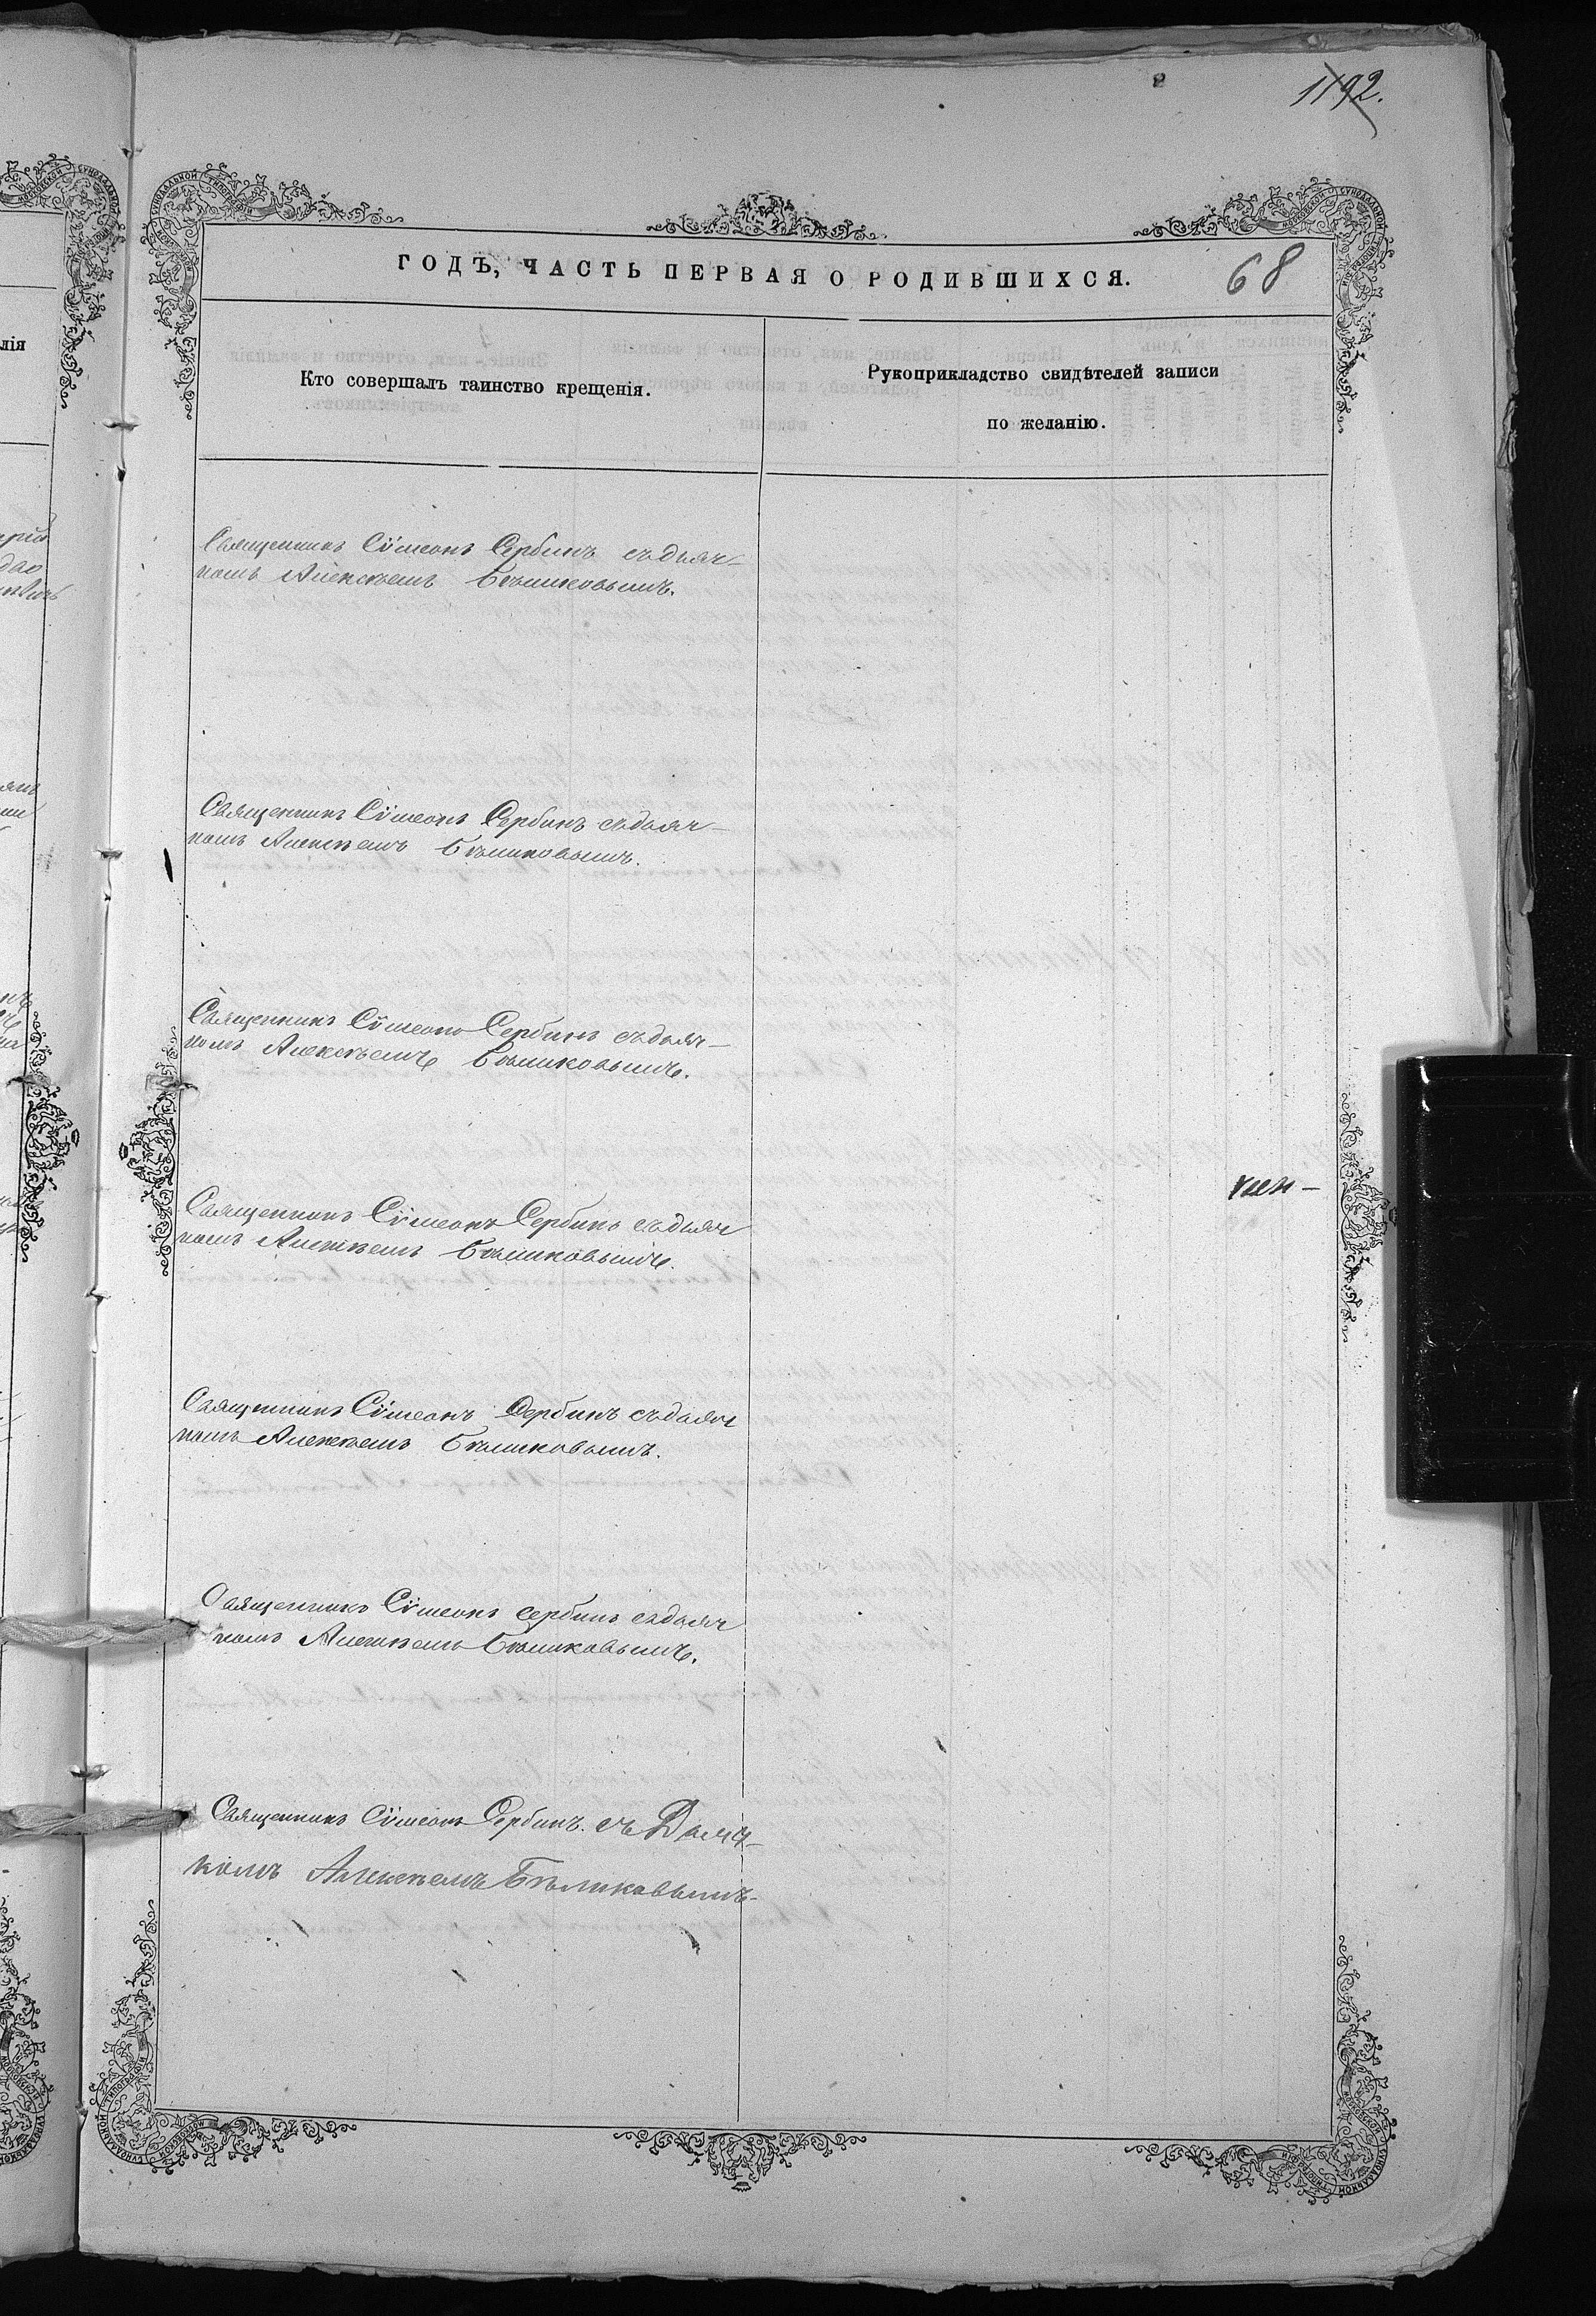 1192.
ГОДЪ, ЧАСТЬ ПЕРВАЯ О РОДИВШИХСЯ.
68
Кто совершалъ таинство крещенія.
Рукоприкладство свидѣтелей записи
по желанію.
Священникъ Сѵмеонъ Сербинъ съ дьяч-
комъ Алексѣемъ Бѣликовымъ.
Священникъ Сѵмеонъ Сербинъ съ дьяч-
комъ Алексѣемъ Бѣликовымъ.
Священникъ Сѵмеонъ Сербинъ съ дьяч-
комъ Алексѣемъ Бѣликовымъ.
Священникъ Сѵмеонъ Сербинъ съ дьяч
комъ Алексѣемъ Бѣликовымъ.
Священникъ Сѵмеонъ Сербинъ съ дьяч
комъ Алексѣемъ Бѣликовымъ.
Священникъ Сѵмеонъ Сербинъ съ дьяч
комъ Алексѣемъ Бѣликовымъ.
Священникъ Сѵмеонъ Сербинъ. съ Дьяч-
комъ Алексѣемъ Бѣликовымъ-